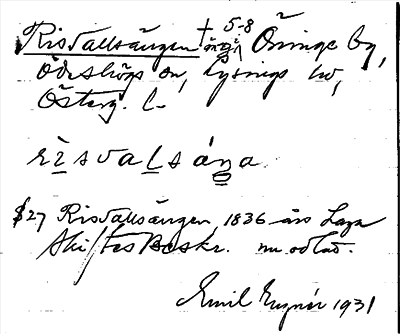 Risvallsängen † äng i 5-8 Öninge by,
Ödeshögs sn, Lysings hd,
Österg. l.
risvalsáŋa.
§27 Risvallsängen, 1836 års Laga
Skiftes Beskr. nu odlad.
Emil 1931